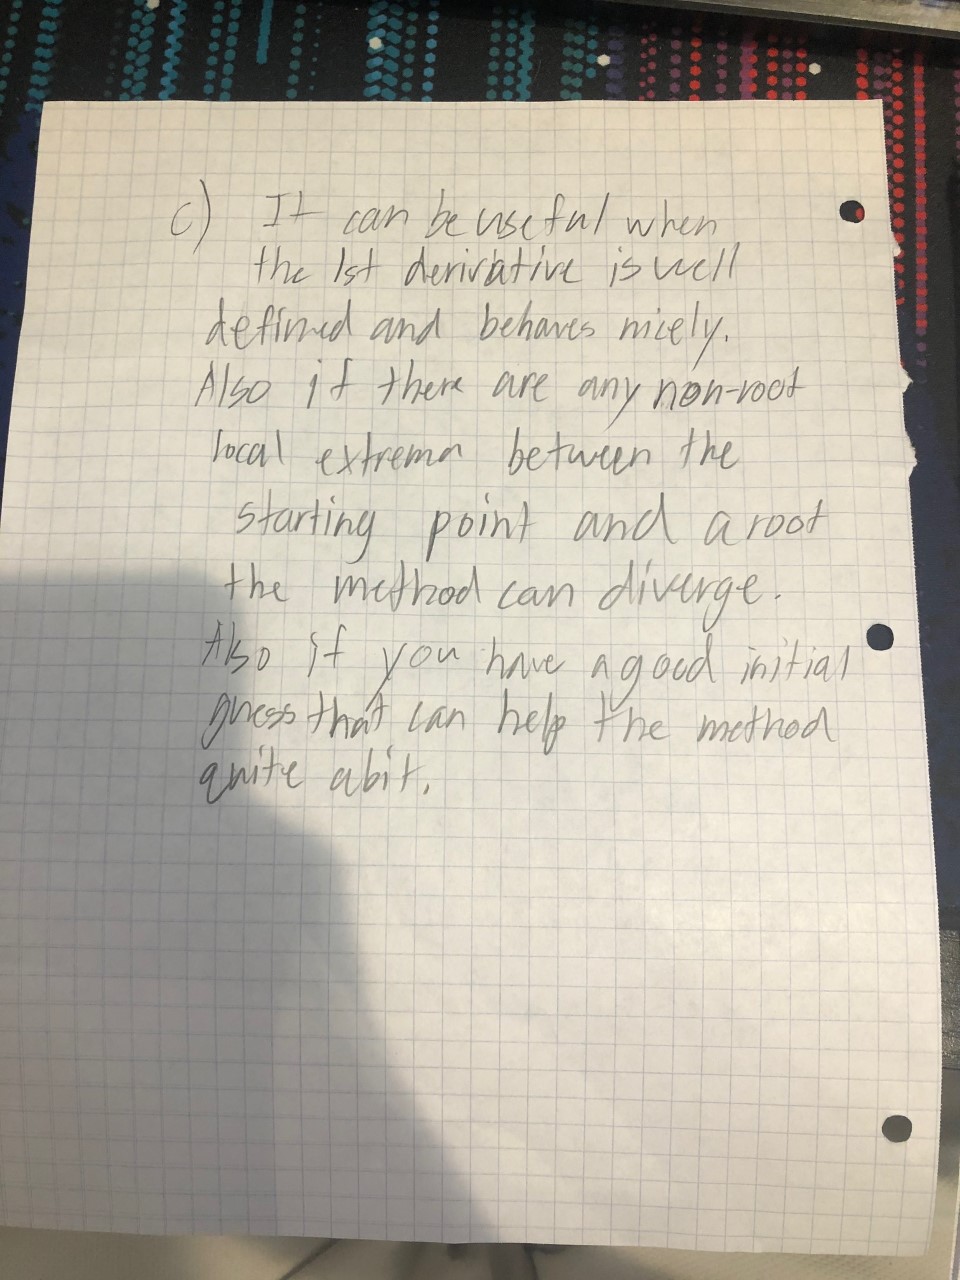 c) It can be useful when
the 1st derivative is well
defined and behaves nicely.
Also if there are any non-root
local extrema between the
starting point and a root
the method can diverge.
Also if you have a good initial
guess that can help the method
quite a bit.